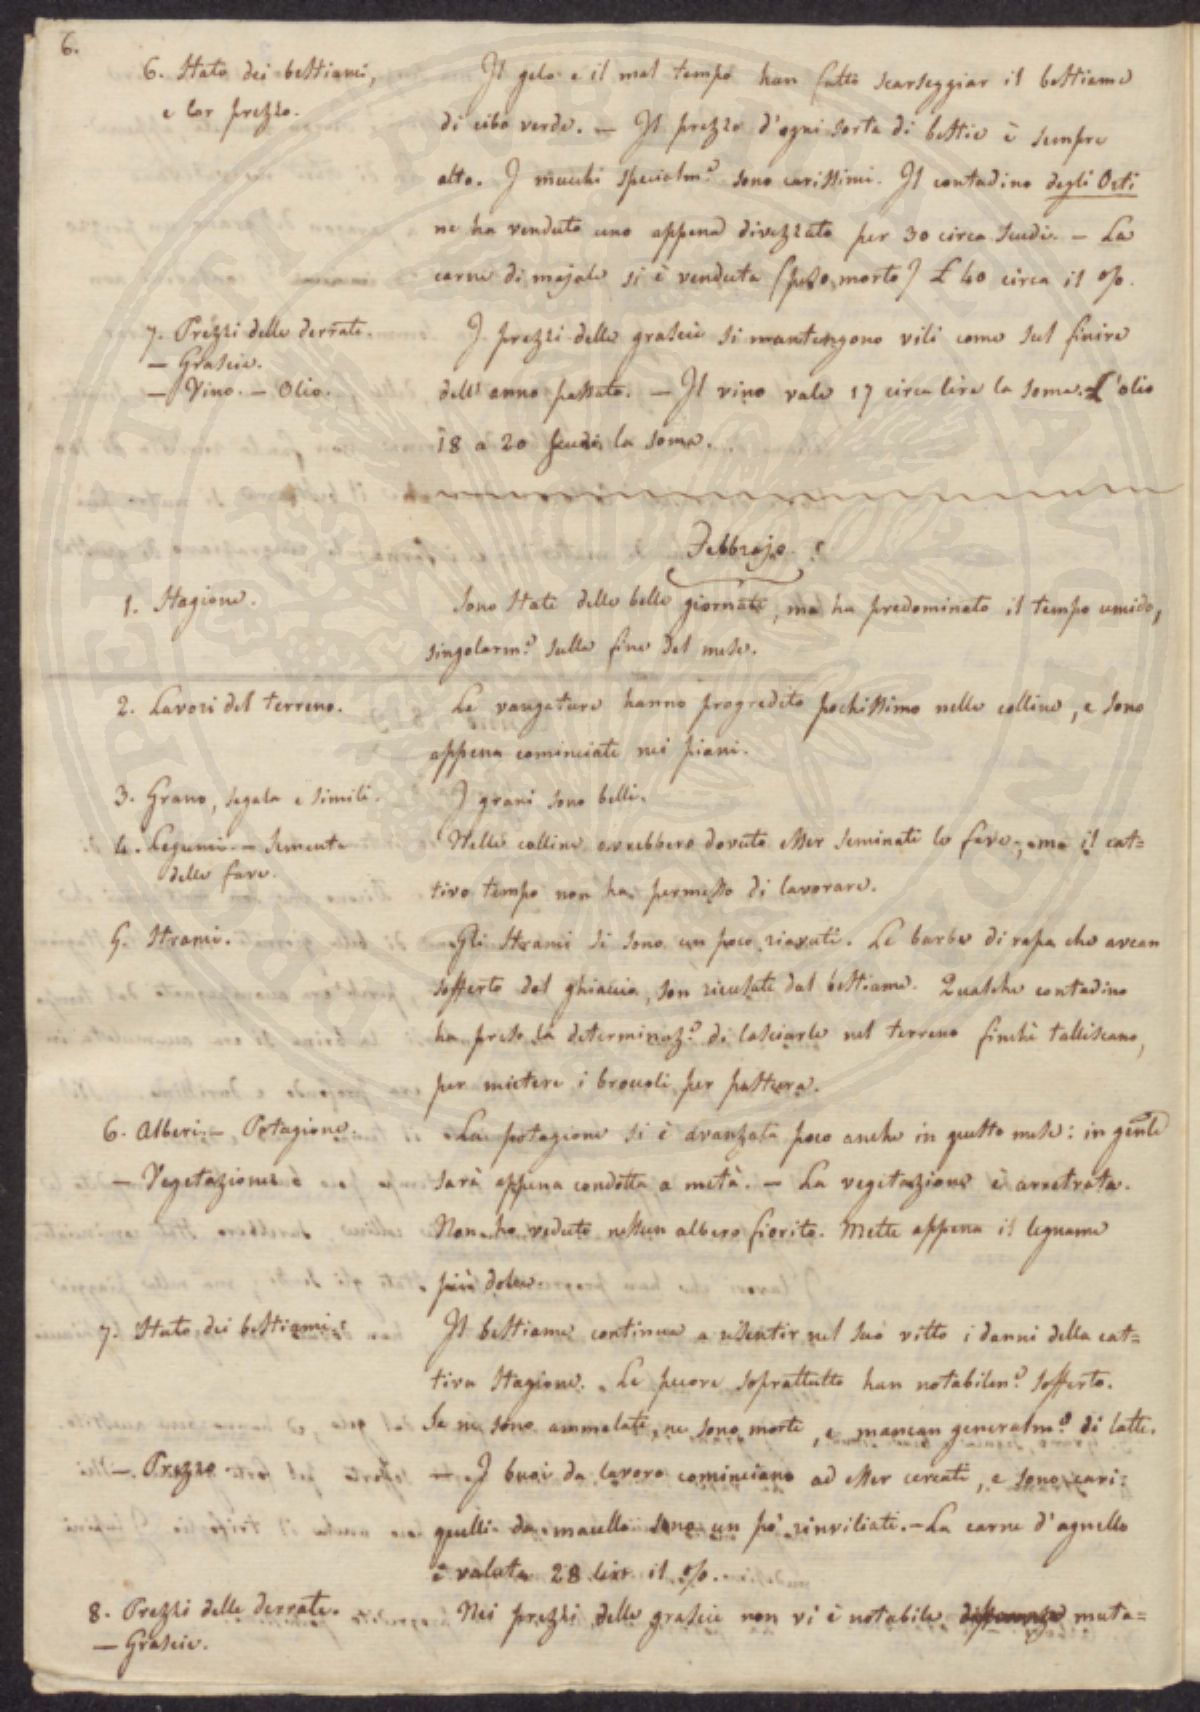 6.
6. Stato dei bestiami,
e lor prezzo.
Il gelo e il mal tempo han fatto scarseggiar il bestiame
di cibo verde. — Il prezzo d'ogni sorta di bestie è sempre
alto. I mucchi specialm.e sono carissimi. Il contadino degli Orti
ne ha venduto uno appena divezzato per 30 circa scudi. — La
carne di majale si è venduta (peso morto) £ 40 circa il %.
7. Prezzi delle derrate.
— Grascie.
— Vino. — Olio.
I prezzi delle grascie si mantengono vili come sul finire
dell'anno passato. — Il vino vale 17 circa lire la soma. L'olio
18 a 20 scudi la soma.
Febbrajo.
1. Stagione.
Sono state delle belle giornate, ma ha predominato il tempo umido,
singolarm.e sulla fine del mese.
2. Lavori del terreno.
Le vangature hanno progredito pochissimo nelle colline, e sono
appena cominciate nei piani.
3. Grano, segala e simili.
I grani sono belli.
4. Legumi. — Sementa
delle fave.
Nelle colline avrebbero dovuto esser seminate le fave, ma il cat=
tivo tempo non ha permesso di lavorare.
5. Strami.
Gli strami si sono un poco riavuti. Le barbe di rapa che avean
sofferto dal ghiaccio, son ricusate dal bestiame. Qualche contadino
ha preso la determinaz.e di lasciarle nel terreno finchè talliscano,
per mietere i broccoli per pastura.
6. Alberi. — Potagione.
— Vegetazione
La potagione si è avanzata poco anche in questo mese: in gen.le
sarà appena condotta a metà. — La vegetazione è arretrata.
Non ho veduto nessun albero fiorito. Mette appena il legname
più dolce.
7. Stato dei bestiami.
Il bestiame continua a risentir nel suo vitto i danni della cat=
tiva stagione. Le pecore soprattutto han notabilm.e sofferto.
Se ne sono ammalate, ne sono morte, e mancan generalm.e di latte.
— Prezzo
— I buoi da lavoro cominciano ad esser cercati, e sono cari:
quelli da macello sono un pò rinviliati. — La carne d'agnello
è valuta 28 lire il %.
8. Prezzi delle derrate.
— Grascie.
Nei prezzi delle grascie non vi è notabile muta=